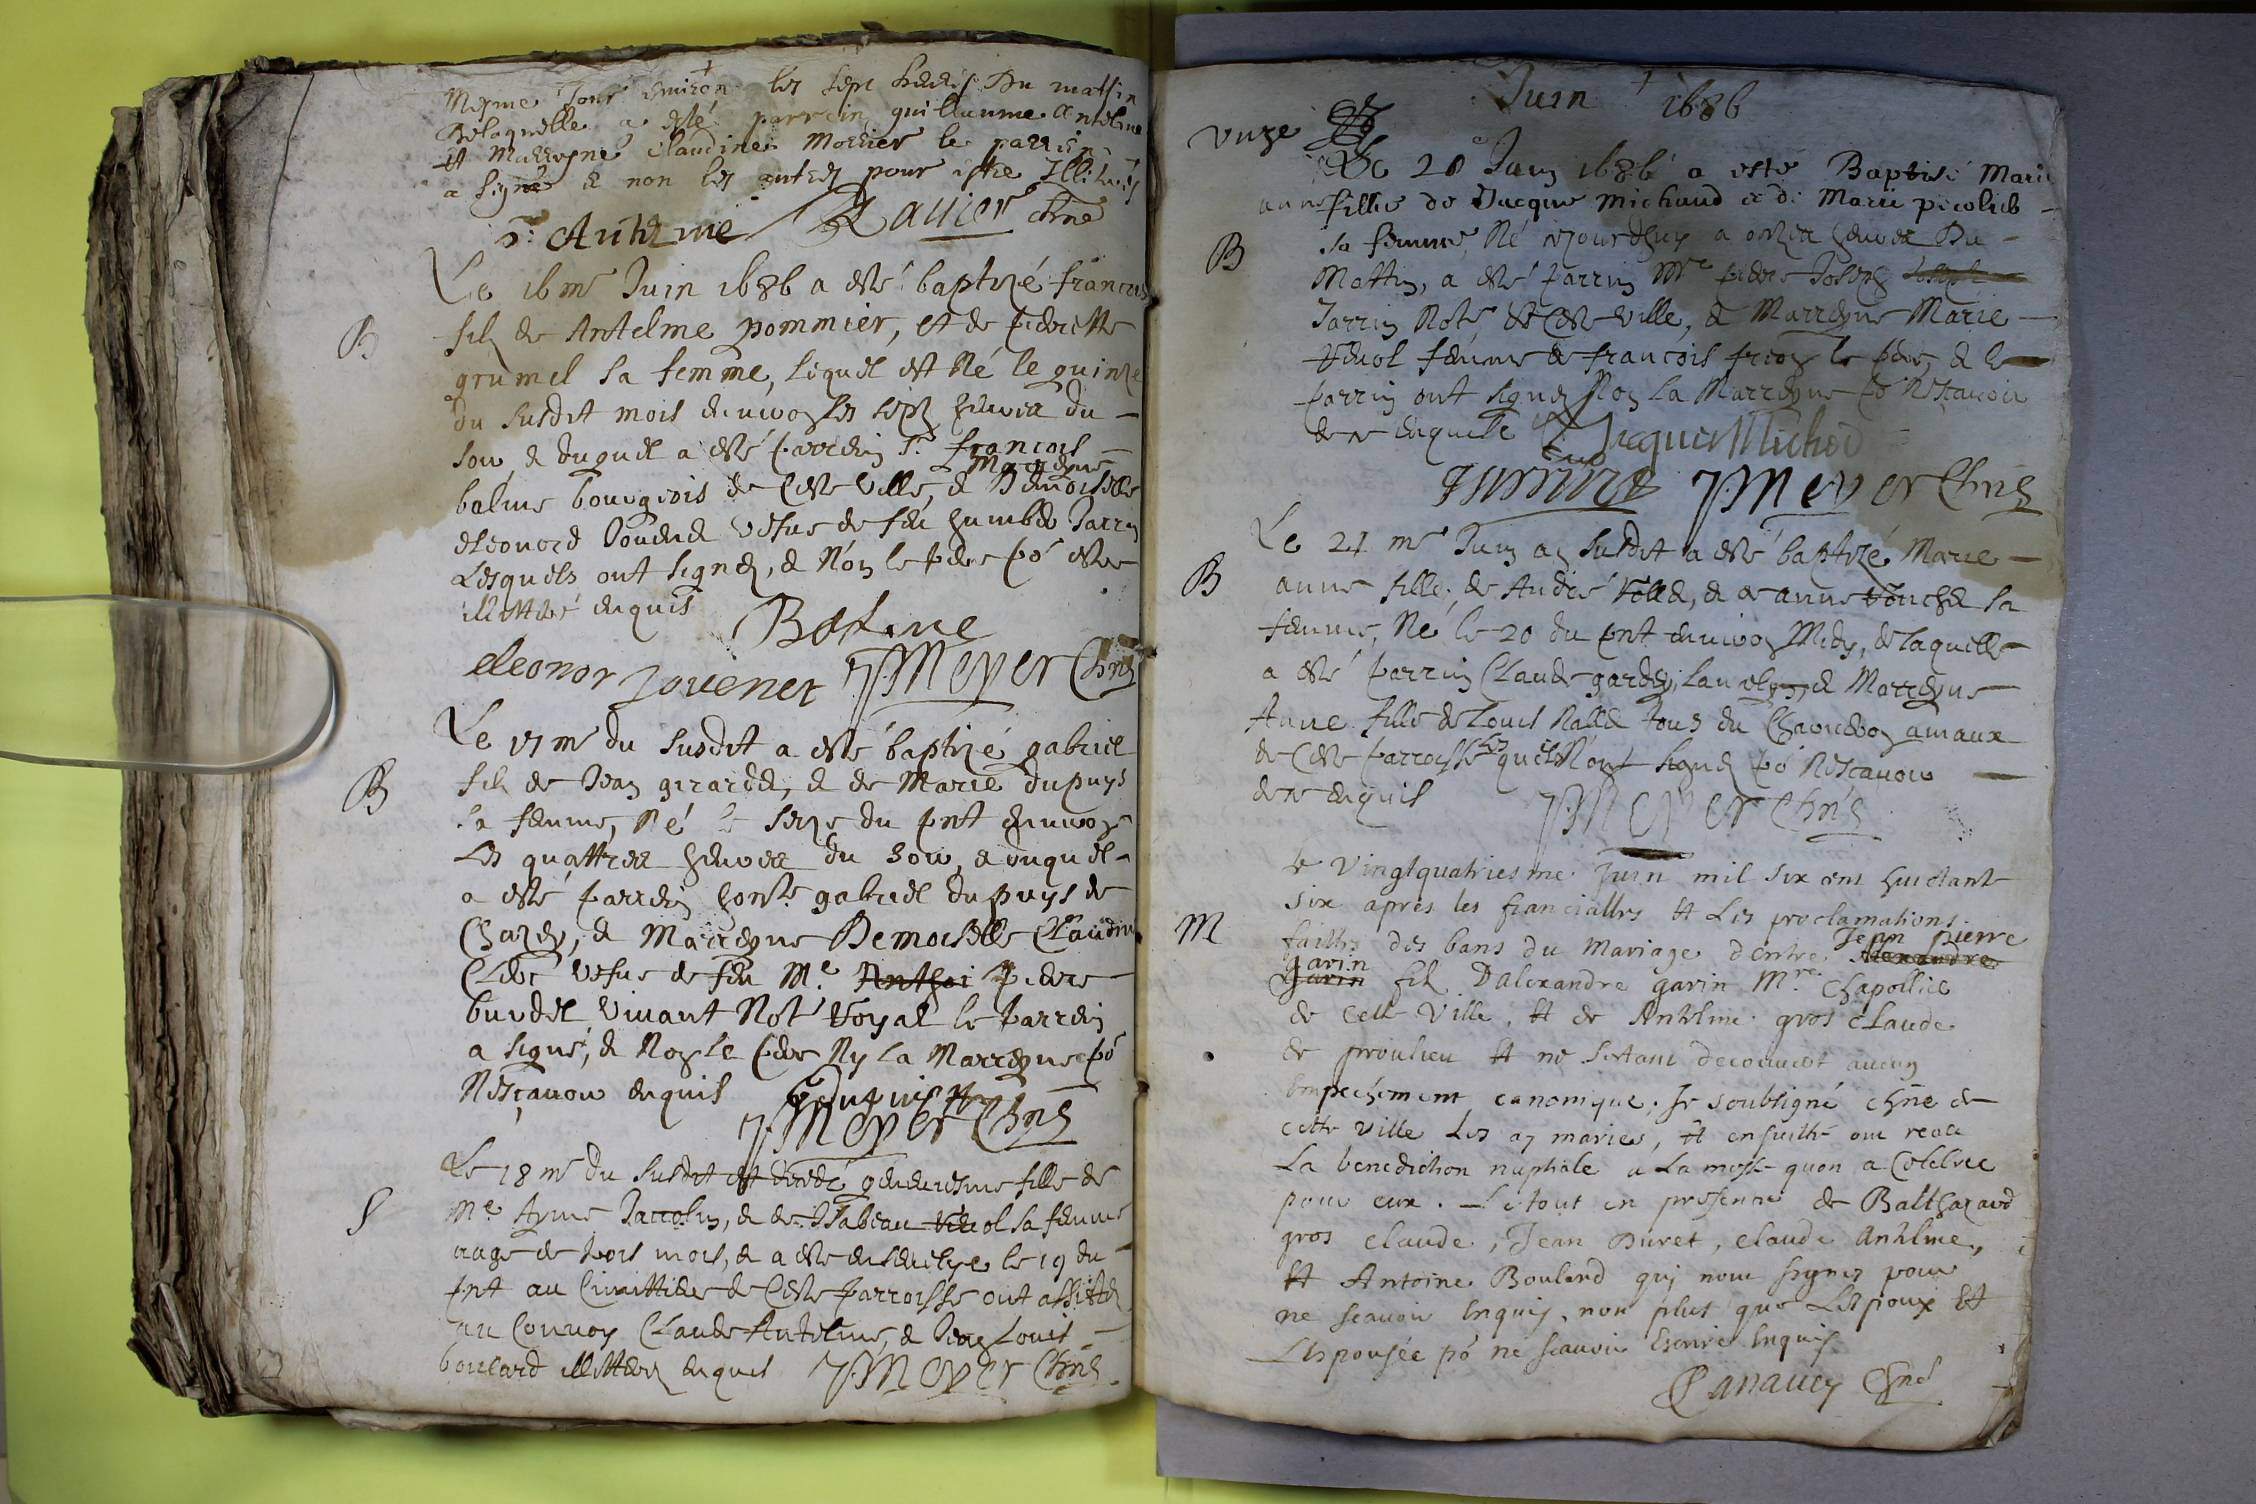 Mesme Jour environ les sept heures Du mattin
Delaquelle a esté parrein guillaume Antelme
Et Marreyne Claudine Morrier le parrein
a signé & non les autres pour estre Illiterés
Anthelme Ravier chne
Le 16 me Juin 1686 a esté baptizé francois
B
fils de Antelme pommier, et de pierrette
grumel sa femme, lequel est Né le quinze
du susdit mois environ les sept heures du
soir, & duquel a esté parrein Sr. francois
Marreyne
balme bourgeois de Ceste Ville, & Demoiselle
eleonord Jouvenet vefue de feu humbert Jarrin
Lesquels ont signez, & Non le pere po estre
illitteré enquis
Balme
eleonor jouenet J Meyer Chne
Le 17 me du susdit a esté baptizé gabriel
B
fils de Jean girardet, & de Marie dupuys
sa femme, Né le seize du pnt environ
Les quattres heures du soir, & duquel
a esté parrein honble gabriel dupuys de
Chazey, & Marreyne Demoiselle Claudine
Clerc vefue de feu Me. Anthoi pierre
burdel vivant Notre Royal le parrein
a signé, & Non le pere Ny la Marreyne po
Nesçavoir enquis G dupuis
J Meyer Chne
Le 18 me du susdit est decedé geneviesme fille de
S
Me. Ayme Jaccolin, & de Isabeau Vuol sa femme
aage de trois mois, & a esté ensevelye le 19 du
pnt au Cimittiere de Ceste parroisse ont assistez
au Convoy Claude Antelme, & Jean Louis
boulard illitterez enquis J Meyer Chne
Juin 1686
vnze
Le 20 Juin 1686 a esté Baptisé Marie
anne fillie de Jacque Michaud & de Marie picolied
B
sa femme, Né cejourdhuy a onzes heures Du
Mattin, a esté parrin Mre pierre Joseph Joseph
Jarrin Notre de Ceste ville, & Marreyne Marie
femme de francois le pere, & le
parrin ont signez Non la Marreyne po Nesçavoir
de ce enquise Jacques Michod
Jarrin J Meyer Chne
Le 21 me Juin an susdit a esté baptizé Marie
B
anne fille de André & de anne sa
femme, Né le 20 du pnt environ Midy, de laquelle
a esté parrin Claude & Marreyne
Anne fille de Louis tous du
de Ceste parroisse lesquels Nont signez po Nesçavoir
de ce enquis
J Meyer Chne
le Vingtquatriesme Juin mil six cent huictante
six apres les fianciallies Et Les proclamations
M
faittes des bans du Mariage dentre Jean pierre Alexandre
garin
garin fils Dalexandre garin Mre. Chapollier
de Cette Ville, Et de Anthelme gros claude
de proulieu Et ne sestant decouvert aucun
Empechement canonique, Je soubsigné chne de
cette ville Les ay maries, Et ensuitte ont receu
La benediction nuptiale a La messe quon a Celebree
pour eux. Le tout en presence de Balthazard
gros claude, Jean Duret, claude Anthelme,
Et Antoine Boulard qui nont signez pour
ne scavoir Enquis, non plus que Lespoux Et
Lespousée po ne scavoir Escrire Enquis
Panauey Chne